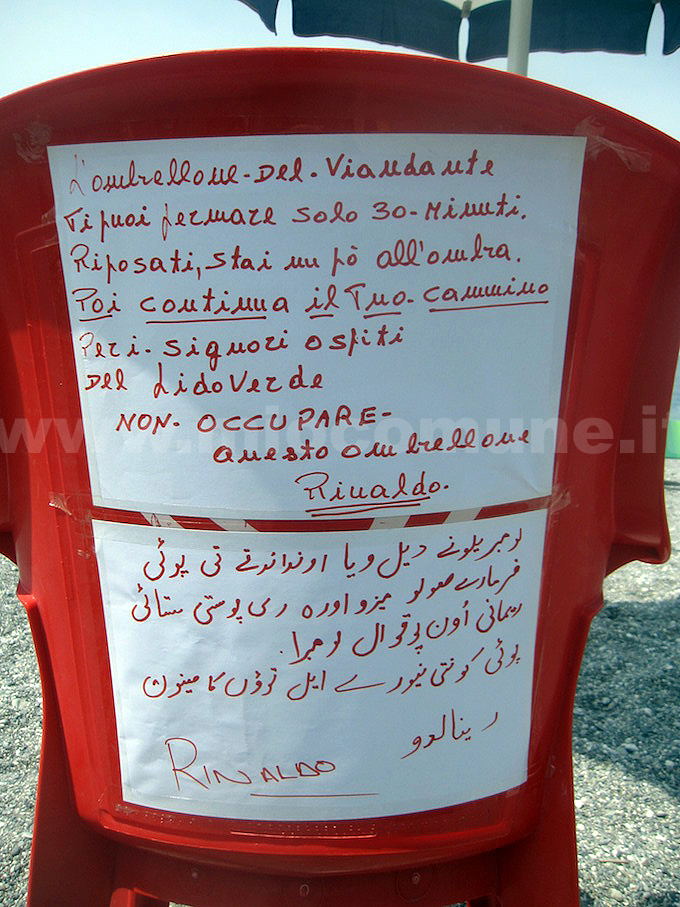 L'ombrellone-del-Viandante
Ti puoi fermare solo 30-Minuti.
Riposati, stai un pò all'ombra.
Poi continua il Tuo-cammino
Per i-signori ospiti
del Lido Verde
NON-OCCUPARE-
questo ombrellone
Rinaldo.
لومبریلونے دیل ویا اونداندتے تی پوئی
فرمارے صولو میزو اورہ ری پوستی ستائی
ریمانی اُون پوقو ال لومبرا.
پوئی کونتی نیورے ایل توؤں کا مینون
رینالدو
RINALDO
www.miocomune.it